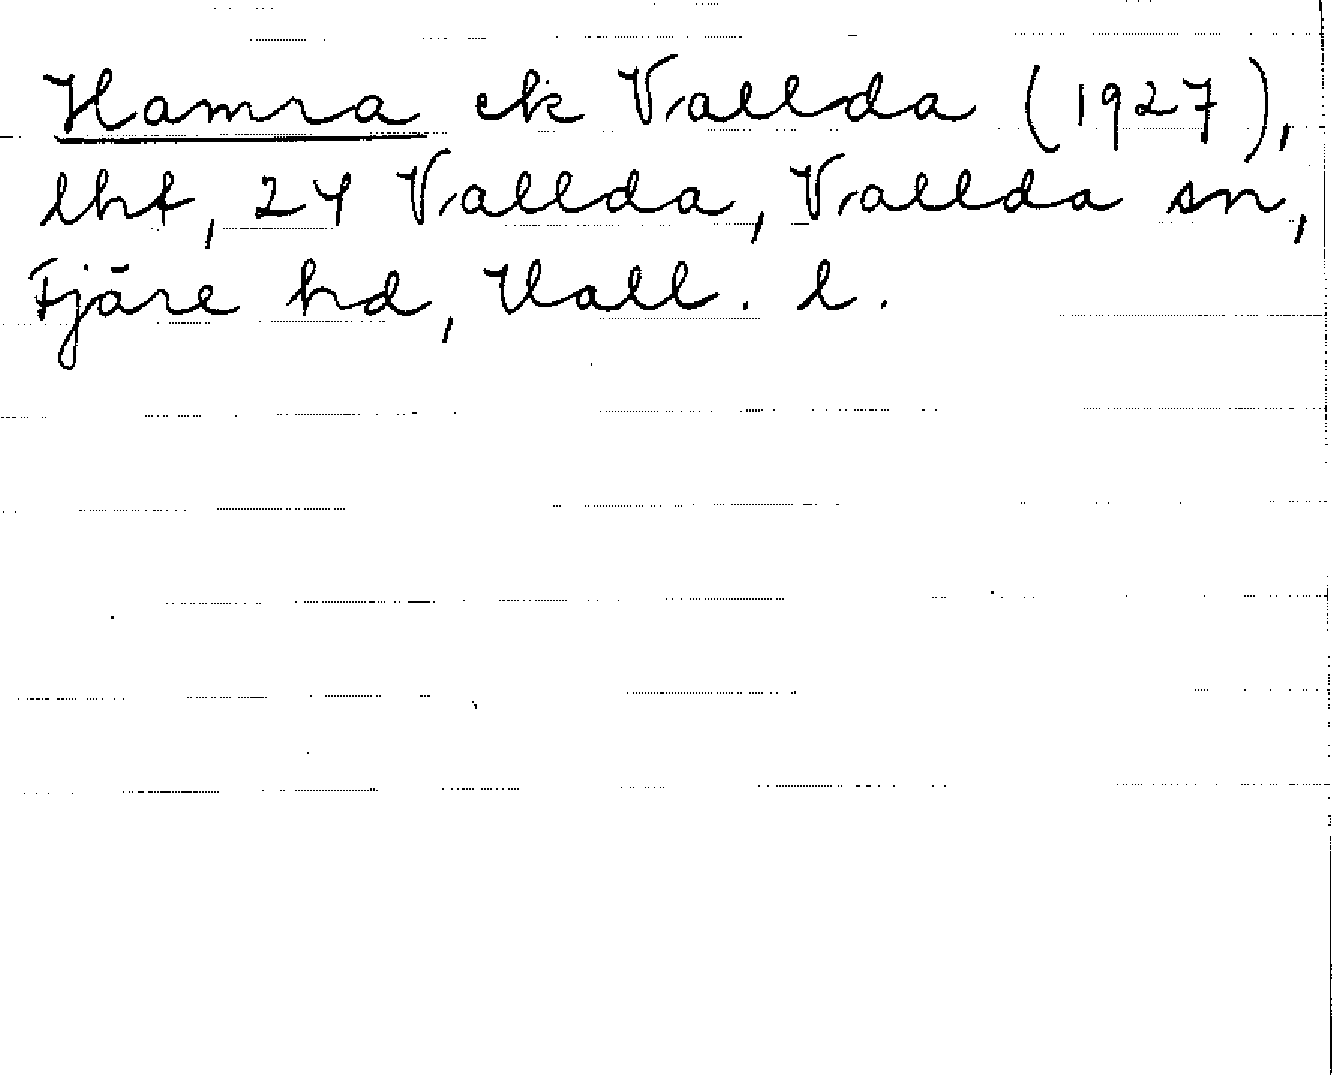 Hamra ek Vallda (1927),
lht, 24 Vallda, Vallda sn,
Fjäre hd, Hall. l.